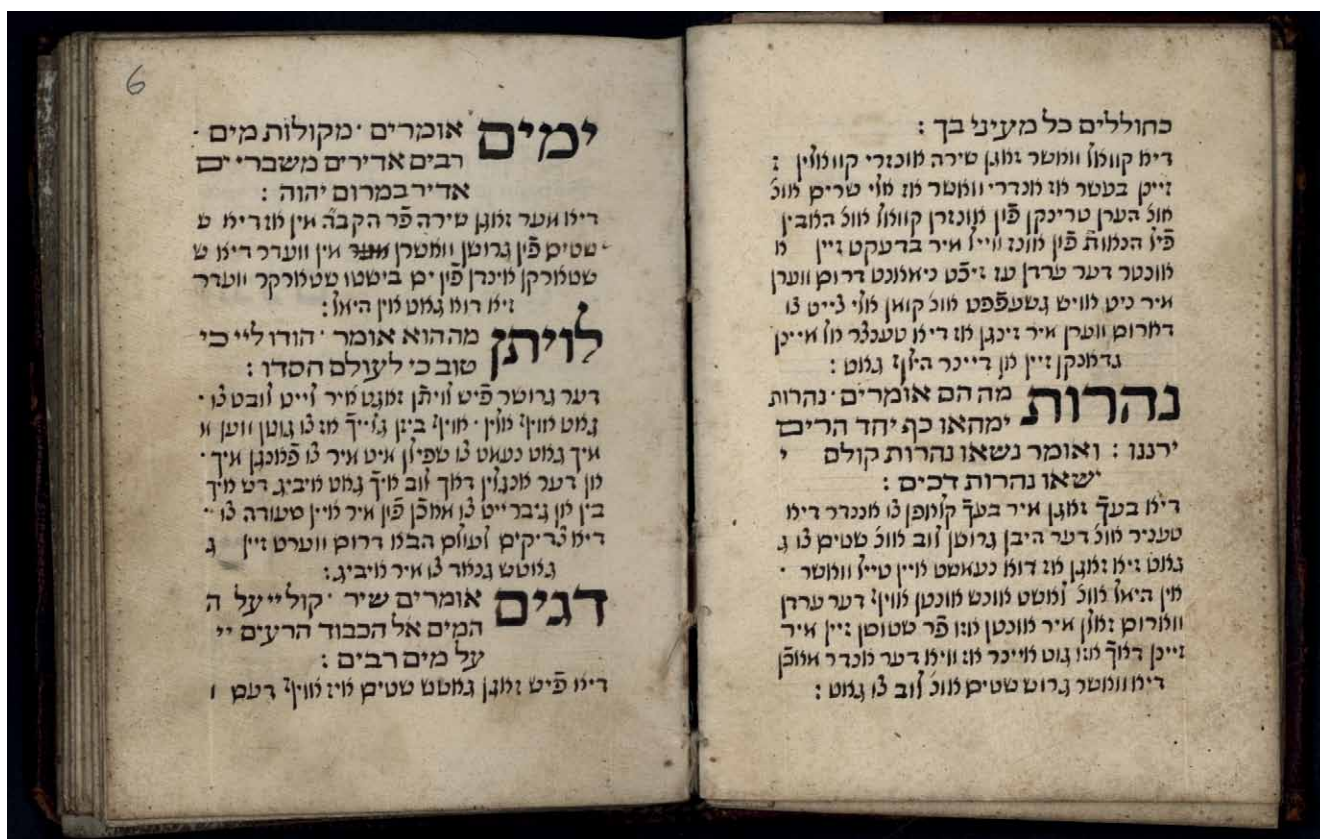 כחוללים כל מעיני בך :
דיא קוואל וואשר זאגן שירה אונזרי קוואלין :
זיינן בעשר אז אנדרי וואשר אז אלי טרים אונ'
אונ' הערן טרינקן פֿון אונזרן קוואל אונ' האבין
פֿיל הנאות פֿון אונז ווייל איר בדעקט זיין א
אונטר דער ערדן עז זיכֿט ניאמנט דרום ווערן
איר ניט וויש גשעפֿפט אונ' קואן אלי צייט צו
דארום ווערן איר זינגן אז דיא טענצר אל איינן
גדאנקן זיין אן דיינר הילף גאט :
נהרות מה הם אומרים · נהרות
ימחאו כף יחד הרים
ירננו : ואומר נשאו נהרות קולם י
ישאו נהרות דכים :
דיא בעך זאגן איר בעך קלאפן צו אננדר דיא
טעניר אונ' דער היבן גרושן לוב אונ' שטים צו ג
גאט זיא זאגן אז דוא נעמשט איין טייל וואשר ·
אין היאל אונ' לאשט אונש אונטן אויף דער ערדן
ווארום זאלן איר אונטן אזו פֿר שטושן זיין איר
זיינן דאך אזו גוט איינר אז וויא דער אנדר אכֿן
דיא וואשר גרוש שטים אונ' לוב צו גאט :
ימים אומרים · מקולות מים ·
רבים אדירים משברי ים
אדיר במרום יהוה :
דיא מער זאגן שירה פֿר הקבה אין אז דיא ש
שטים פֿון גרושן וואשרן אין ווערר דיא ש
שטארקן אינדן פֿון ים בישטו שטארקר ווערר
זיא דוא גאט אין היאל :
לויתן מה הוא אומר · הודו ליי כי
טוב כי לעולם חסדו :
דער גרושר פֿיש לויתן זאגט איר לייט לובט צו ·
גאט אויף אלין · אויף בינן גלייך אז צו גוטן ווען א
איך גאט נעמט צו שפילן מיט איר צו פֿאנגן איך ·
אן דער אנגלין דאך לוב איך גאט איביג דש איך
בין אן גיברייט צו אכֿן פֿון איר איין סעודה צו ·
דיא צדיקים לעולם הבא דרום ווערט זיין ג
גאטש גנאד צו איר איביג :
דגים אומרים שיר · קול יי על ה
המים אל הכבוד הרעים יי
על מים רבים :
דיא פֿיש זאגן גאטש שטים איז אויף דעם ו